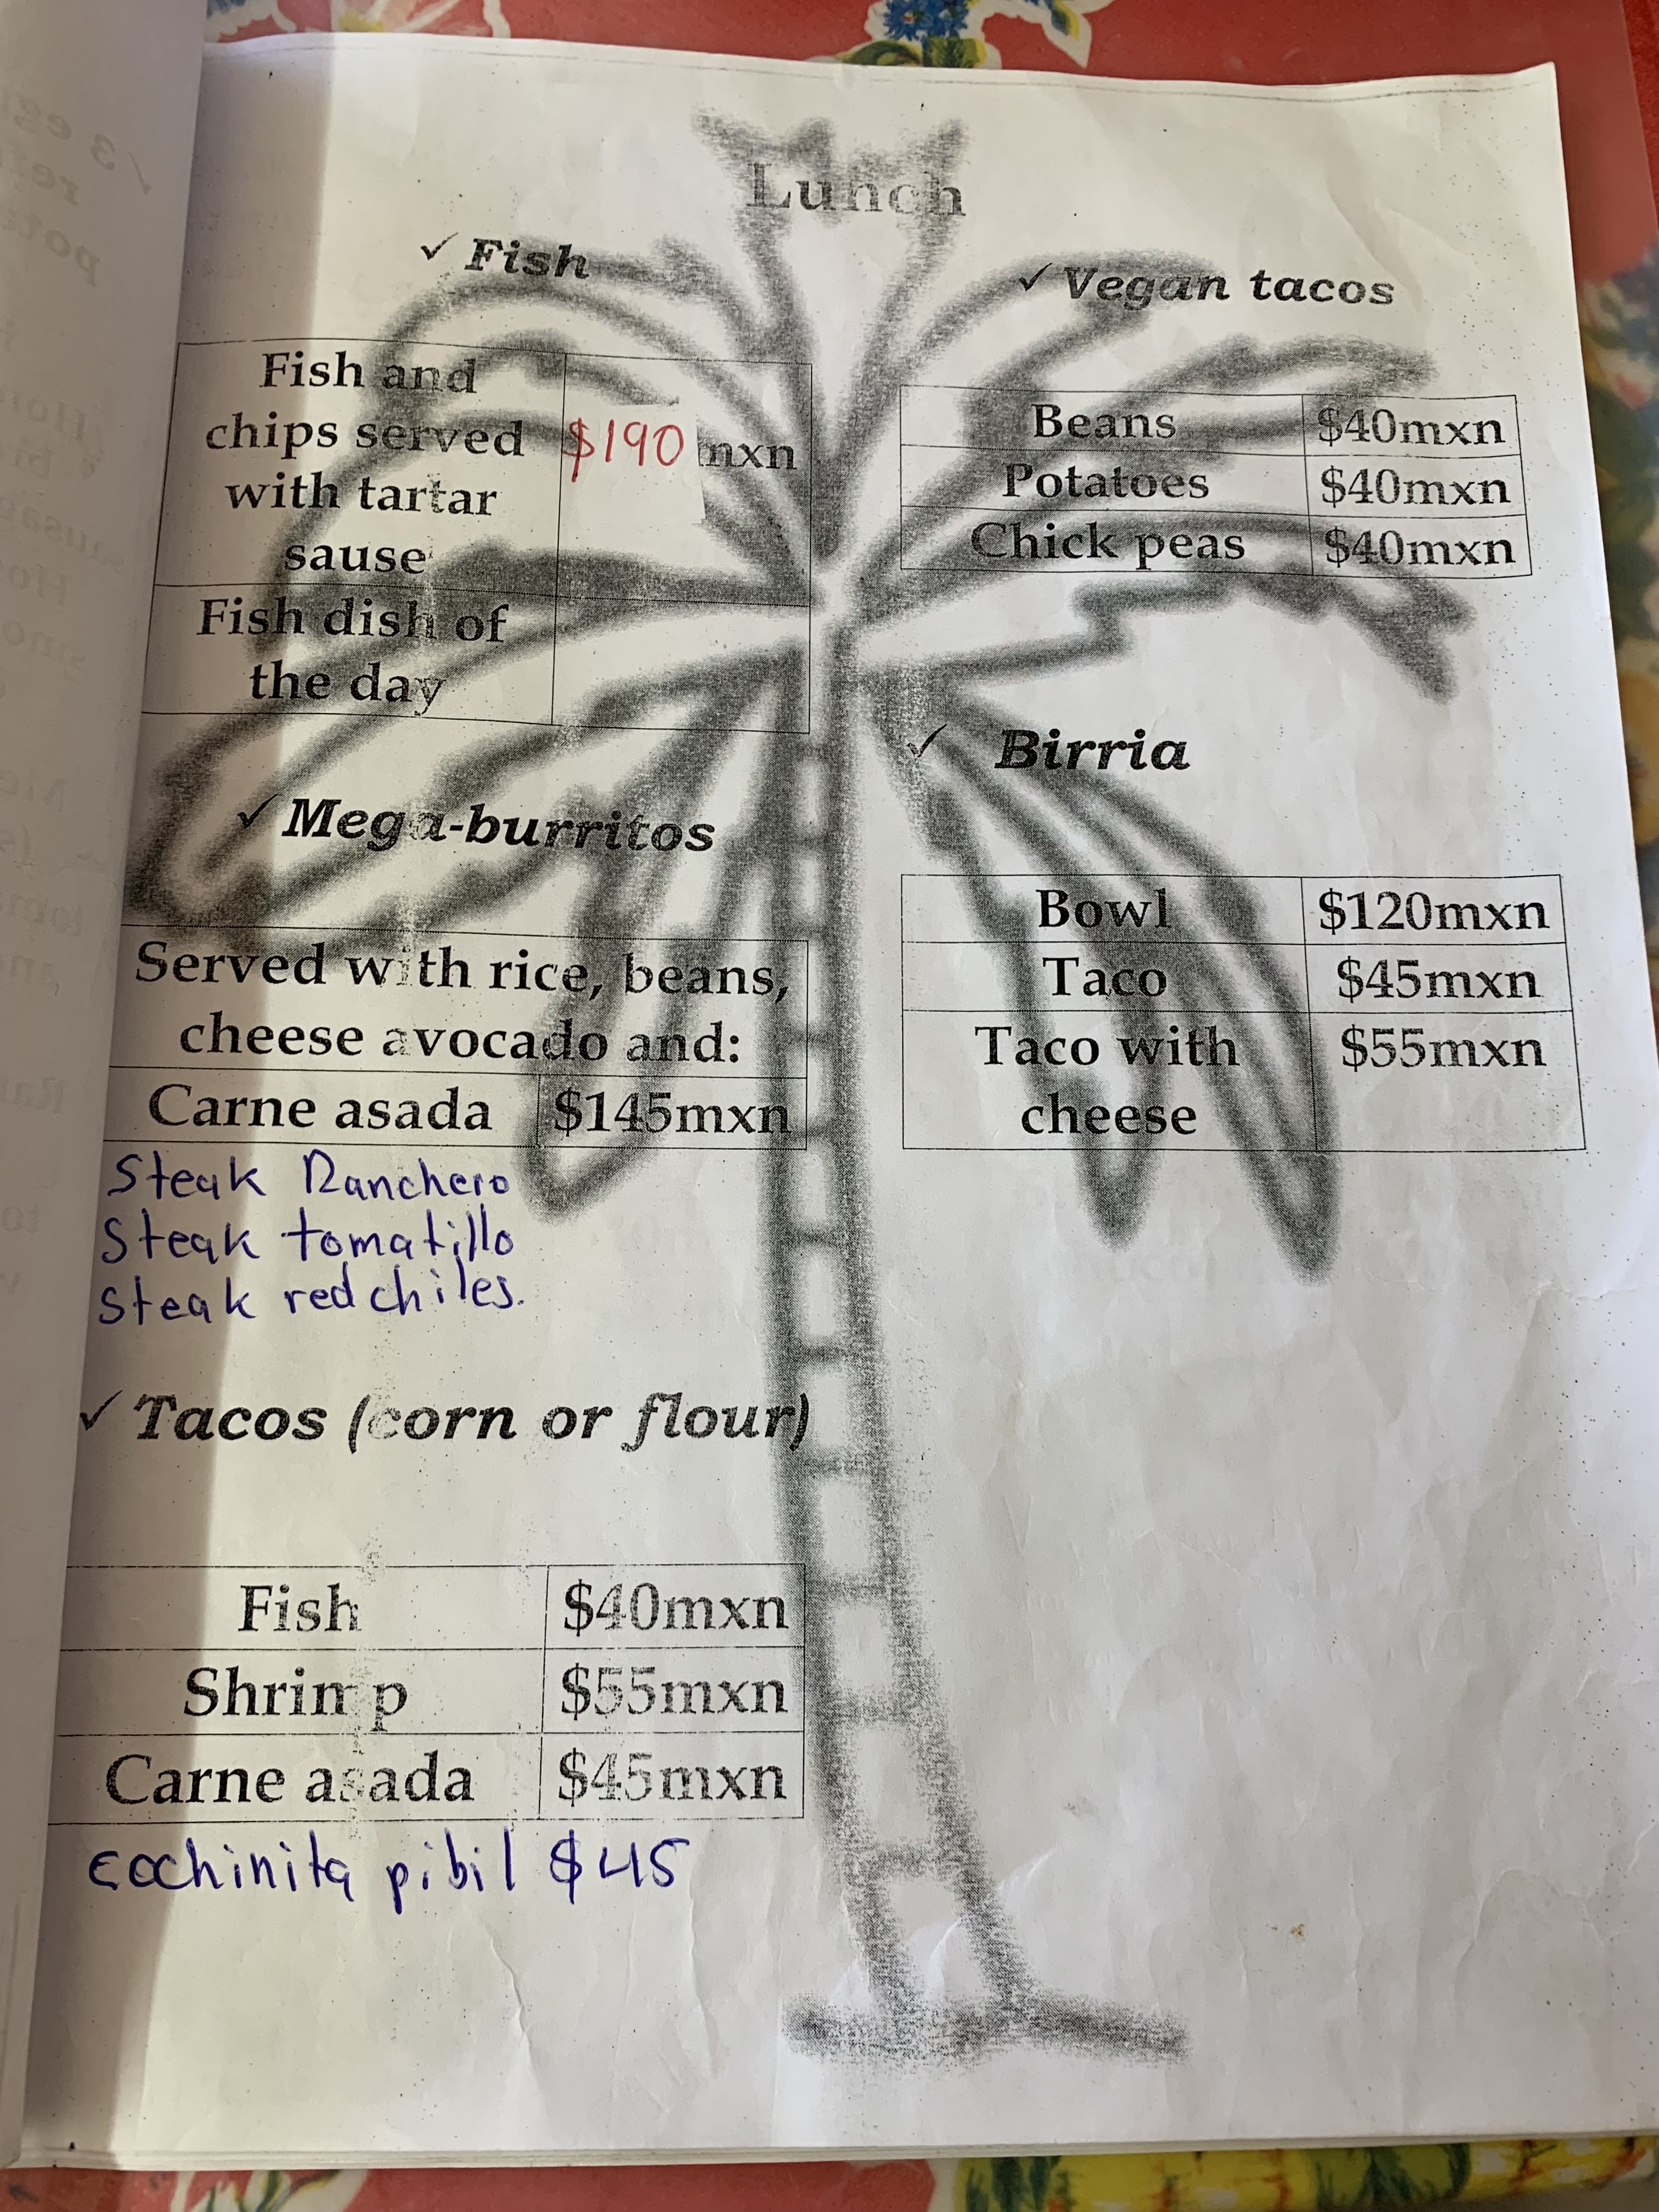 Lunch
✓ Fish
Fish and
chips served
with tartar
sause
$190 mxn
Fish dish of
the day
✓ Mega-burritos
Served with rice, beans,
cheese avocado and:
Carne asada $145mxn
Steak Ranchero
Steak tomatillo
Steak red chiles.
✓ Tacos (corn or flour)
Fish $40mxn
Shrimp $55mxn
Carne asada $45mxn
cochinita pibil $45
✓ Vegan tacos
Beans $40mxn
Potatoes $40mxn
Chick peas $40mxn
✓ Birria
Bowl $120mxn
Taco $45mxn
Taco with $55mxn
cheese